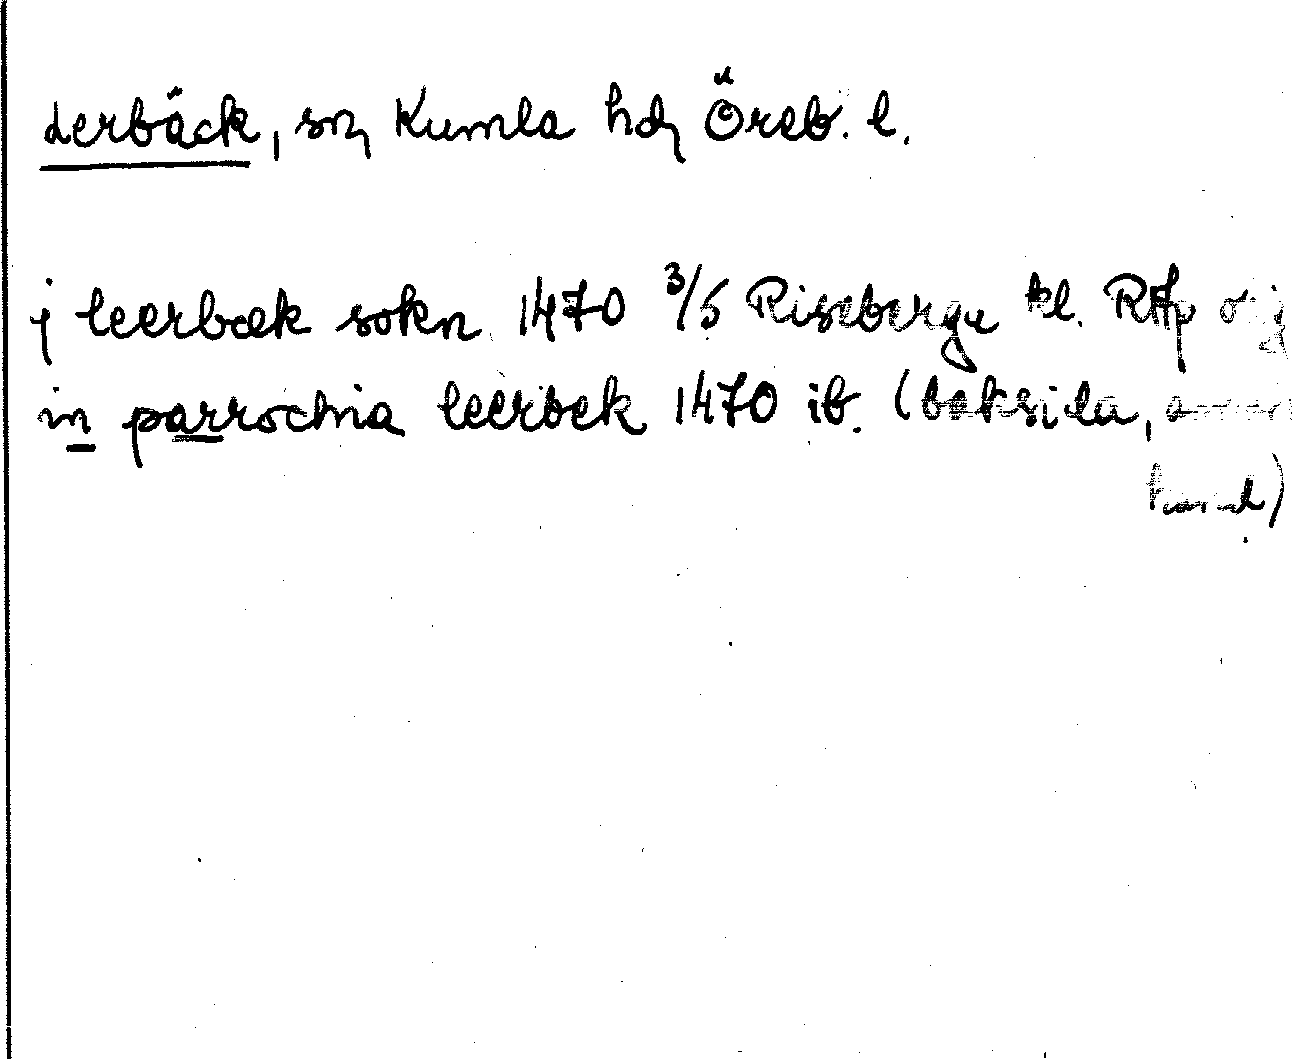 Lerbäck, sn, Kumla hd, Öreb. l.
j leerbæk sokn 1470 3/5 Riseberga kl. RAp orig
in parrochia leerbek 1470 ib. (baksida, annan
hand)